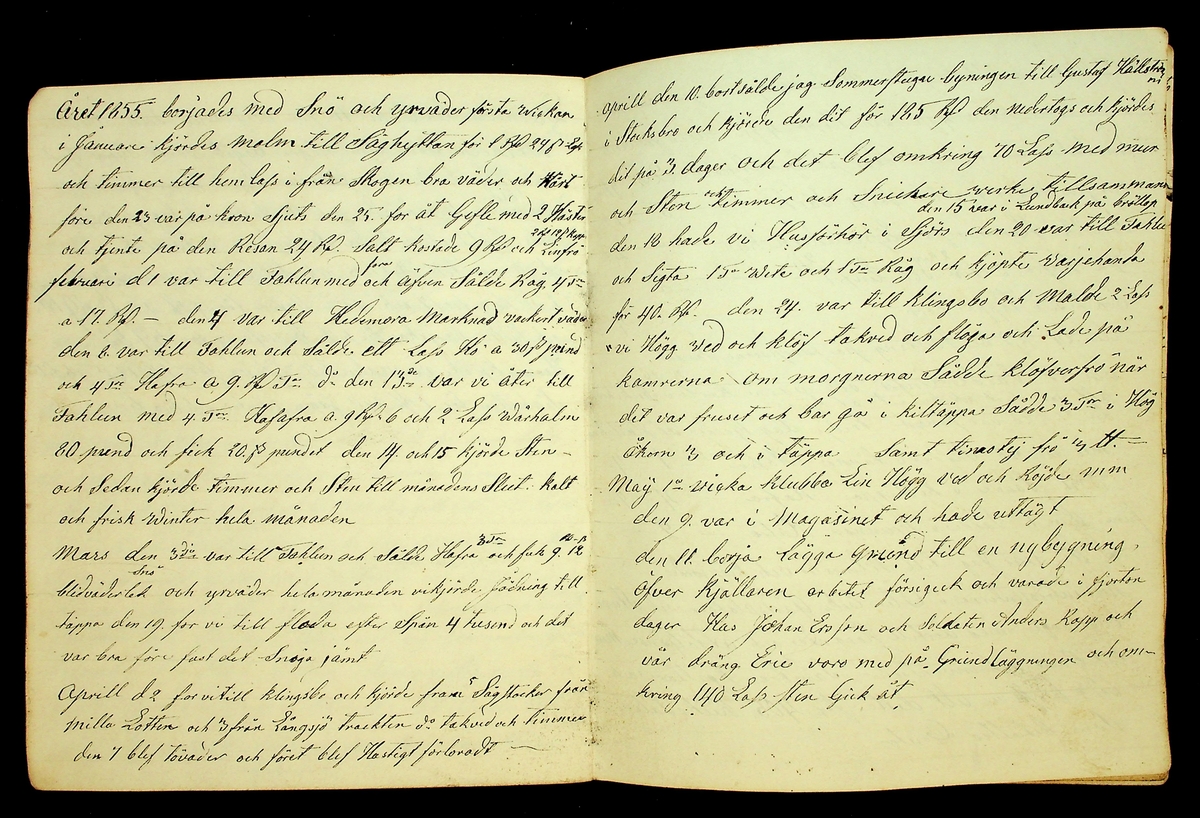 Året 1855. börjades med Snö och yrväder första Wickan
i Januari kjördes malm till Säghyttan för 1 Rd 24 s Lass
och timmer till hemlass i från Skogen bra väder och Hårt
före den 23 var på kron Sjuts den 25. for åt Gefle med 2 Hästar
och tjente på den Resan 24 Rd. Salt kostade 9 Rd och Linfrö
februari d 1 var till Fahlun med före och äfven Sålde Råg 4 Tr
a 17. Rd. — den 4 var till Hedemora Marknad vackert väder
den 6. var till Fahlun och Sålde ett Lass Hö a 30 s pund
och 4 Tr Hafra a 9. Rd Tr do den 13de var vi åter till
Fahlun med 4. Tr Hafafra a 9 Rd 6 och 2 Lass Wårhalm
80 pund och fick 20. s pundet den 14. och 15 kjörde Sten
och Sedan kjörde timmer och Sten till månadens Slut. kalt
och frisk Winter hela månaden
Mars den 3dje var till Fahlun och Sålde Hafra 3 Tr och fick 9. 12
Snö
blidväderlek och yrväder hela månaden vi kjörde födning till
täppa den 19. for vi till floda efter Spån 4 tusend och det
var bra före fast det Snöga jämt
Aprill d 2 for vi till klingsbo och kjörde fram Sågstocker från
milla Lotten och 3 från Långsjö trackten do takved och timmer
den 7 blef töväder och föret blef Hastigt förloradt —
Aprill den 10. bortsålde jag Sommerstugu byningen till Gustaf Hällström
i Stocksbro och kjörde den dit för 185 Rd den nedertogs och kjördes
dit på 3. dager och det blef omkring 70 Lass med mur
och Sten och timmer och Snickare verke tillsammans
den 15 var i Lundbäck på bröllop
den 18 hade vi Husförhör i Sjörs den 20 var till Fahlun
och Sigta 1 Tr Wete och 1 Tr Råg och kjöpte varjehanda
för 40. Rd. den 24. var till klingsbo och Malde 2 Lass
vi Högg Ved och klöf takved och flöga och Lade på
kamrerna om morgnerna Sådde klöfverfrö när
det var fruset och bar gå i kiltäppa Sådde 3 Tr i Hög
Åkern 3 och i täppa Samt timotej frö 1/2 tt. —
Maij 1a vicka klubba Lin Högg ved och Röjde mm
den 9. var i Magasinet och hade uttägt
den 11. börja Lägga grund till en nybygning
öfver kjällaren arbetet försigeck och varade i fjorton
dager Hus Johan Ersson och Soldaten Anders Rapp och
vår dräng Eric voro med på Grundläggningen och om-
kring 140 Lass Sten Gick åt